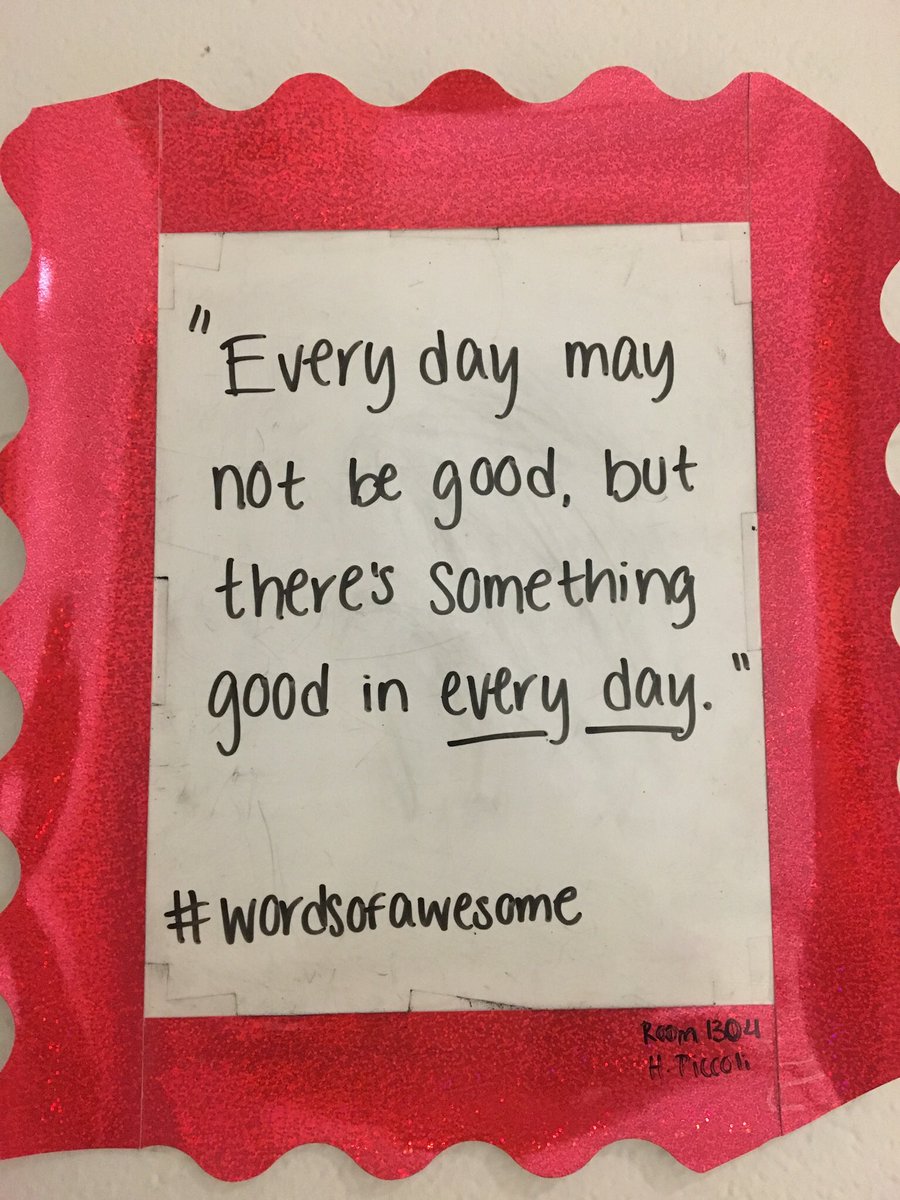 "Every day may
not be good, but
there's something
good in every day."
#wordsofawesome
Room 1304
H. Piccoli